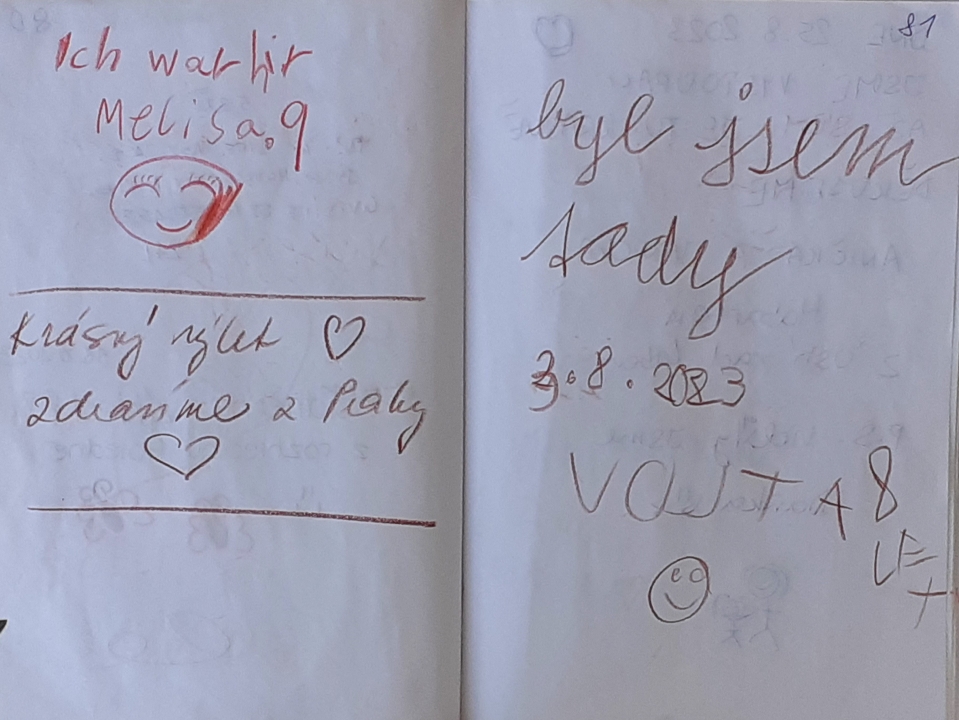 Ich war hir
Melisa. 9
Krásný výlet
zdravíme z Prahy
81
byl jsem
tady
3.8.2023
VOJTA 8
LET